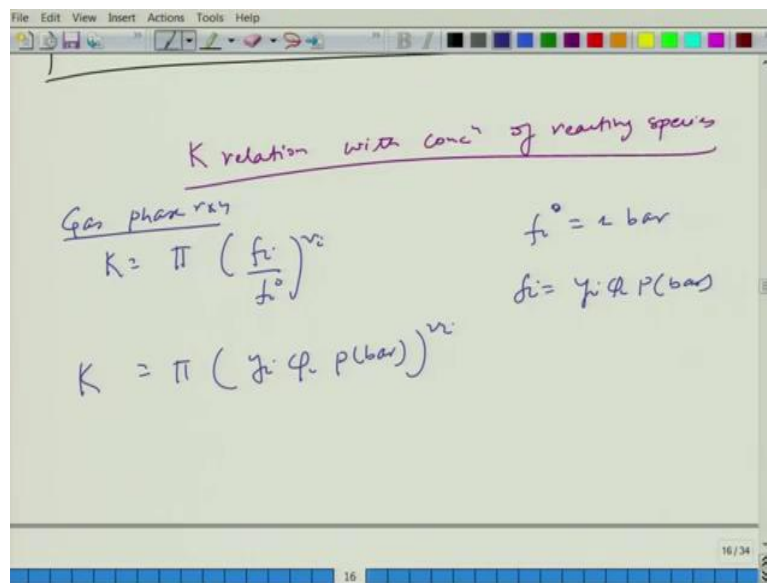 File Edit View Insert Actions Tools Help
K relation with concⁿ of reacting species
Gas phase rxn
K = π (fi / fi°)^νi
fi° = 1 bar
fi = yi φi P(bar)
K = π (yi φi P(bar))^νi
16/34
16